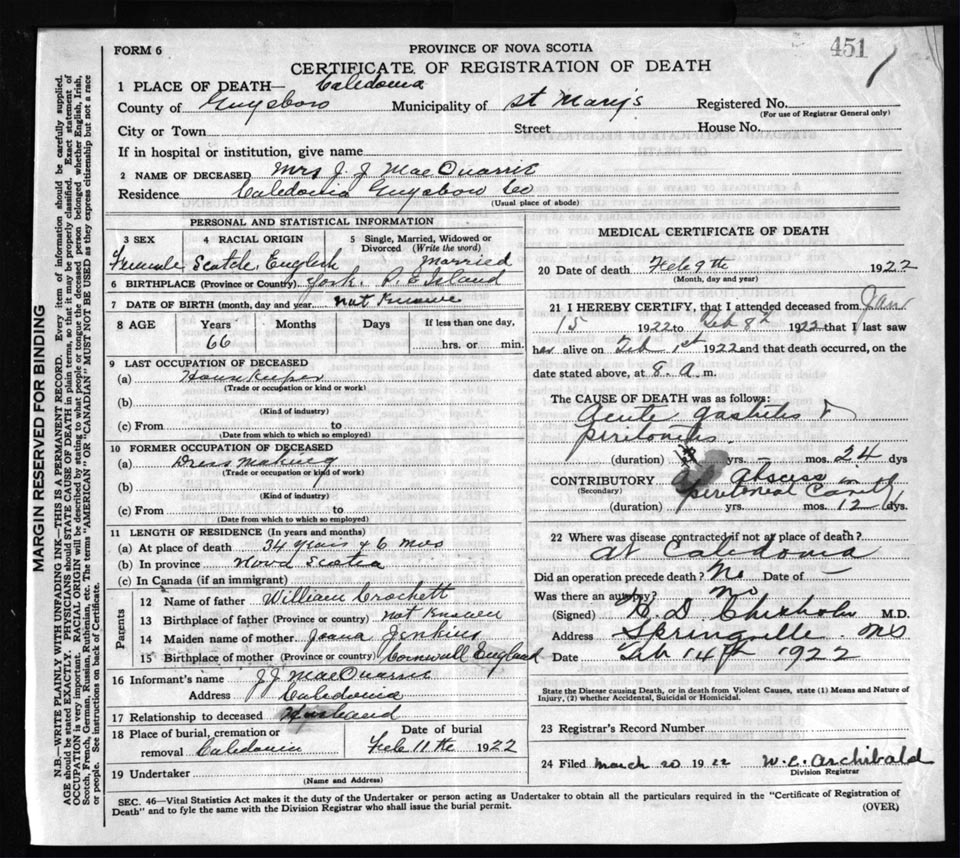 451
FORM 6
PROVINCE OF NOVA SCOTIA
CERTIFICATE OF REGISTRATION OF DEATH
1 PLACE OF DEATH— Caledonia
County of Guysboro Municipality of St Mary's Registered No.
(For use of Registrar General only)
City or Town Street House No.
If in hospital or institution, give name
2 NAME OF DECEASED Mrs J. J. MacQuarrie
Residence Caledonia Guysboro Co
(Usual place of abode)
PERSONAL AND STATISTICAL INFORMATION
3 SEX 4 RACIAL ORIGIN 5 Single, Married, Widowed or Divorced (Write the word)
Female Scotch, English Married
6 BIRTHPLACE (Province or Country) York, P. E Island
7 DATE OF BIRTH (month, day and year) not Known
8 AGE Years Months Days If less than one day,
66 hrs. or min.
9 LAST OCCUPATION OF DECEASED
(a) Housekeeper
(Trade or occupation or kind or work)
(b)
(Kind of industry)
(c) From to
(Date from which to which so employed)
10 FORMER OCCUPATION OF DECEASED
(a) Dress making
(Trade or occupation or kind of work)
(b)
(Kind of industry)
(c) From to
(Date from which to which so employed)
11 LENGTH OF RESIDENCE (In years and months)
(a) At place of death 34 years & 6 mos
(b) In province Nova Scotia
(c) In Canada (if an immigrant)
Parents
12 Name of father William Crockett
13 Birthplace of father (Province or country) not Known
14 Maiden name of mother Joana Jenkins
15 Birthplace of mother (Province or country) Cornwall England
16 Informant's name J. J. MacQuarrie
Address Caledonia
17 Relationship to deceased Husband
18 Place of burial, cremation or removal Caledonia
Date of burial
Feb 11th 1922
19 Undertaker
(Name and Address)
MEDICAL CERTIFICATE OF DEATH
20 Date of death Feb 9th 1922
(Month, day and year)
21 I HEREBY CERTIFY, that I attended deceased from Jan
15 1922 to Feb 8th 1922 that I last saw
her alive on Feb 1st 1922 and that death occurred, on the
date stated above, at 8. a. m.
The CAUSE OF DEATH was as follows:
Acute gastritis &
peritonitis.
(duration) yrs. — mos. 24 dys
CONTRIBUTORY Abscess in
(Secondary) peritoneal Cavity
(duration) yrs. mos. 12 dys.
22 Where was disease contracted if not at place of death?
at Caledonia
Did an operation precede death? No Date of —
Was there an autopsy? no
(Signed) D Chisholm M.D.
Address Springville NS
Date Feb 14th 1922
State the Disease causing Death, or in death from Violent Causes, state (1) Means and Nature of
Injury, (2) whether Accidental, Suicidal or Homicidal.
23 Registrar's Record Number
24 Filed march 20 1922 W. C. Archibald
Division Registrar
SEC. 46—Vital Statistics Act makes it the duty of the Undertaker or person acting as Undertaker to obtain all the particulars required in the "Certificate of Registration of
Death" and to fyle the same with the Division Registrar who shall issue the burial permit. (OVER)
MARGIN RESERVED FOR BINDING
N.B.—WRITE PLAINLY WITH UNFADING INK—THIS IS A PERMANENT RECORD. Every item of information should be carefully supplied.
AGE should be stated EXACTLY. PHYSICIANS should STATE CAUSE OF DEATH in plain terms, so that it may be properly classified. Exact statement of
OCCUPATION is very important. RACIAL ORIGIN will be described by stating to what people or tongue the deceased person belonged whether English, Irish,
Scotch, French, German, Russian, Ruthenian, etc. The terms "AMERICAN" OR "CANADIAN" MUST NOT BE USED as they express citizenship but not a race
or people. See instructions on back of Certificate.